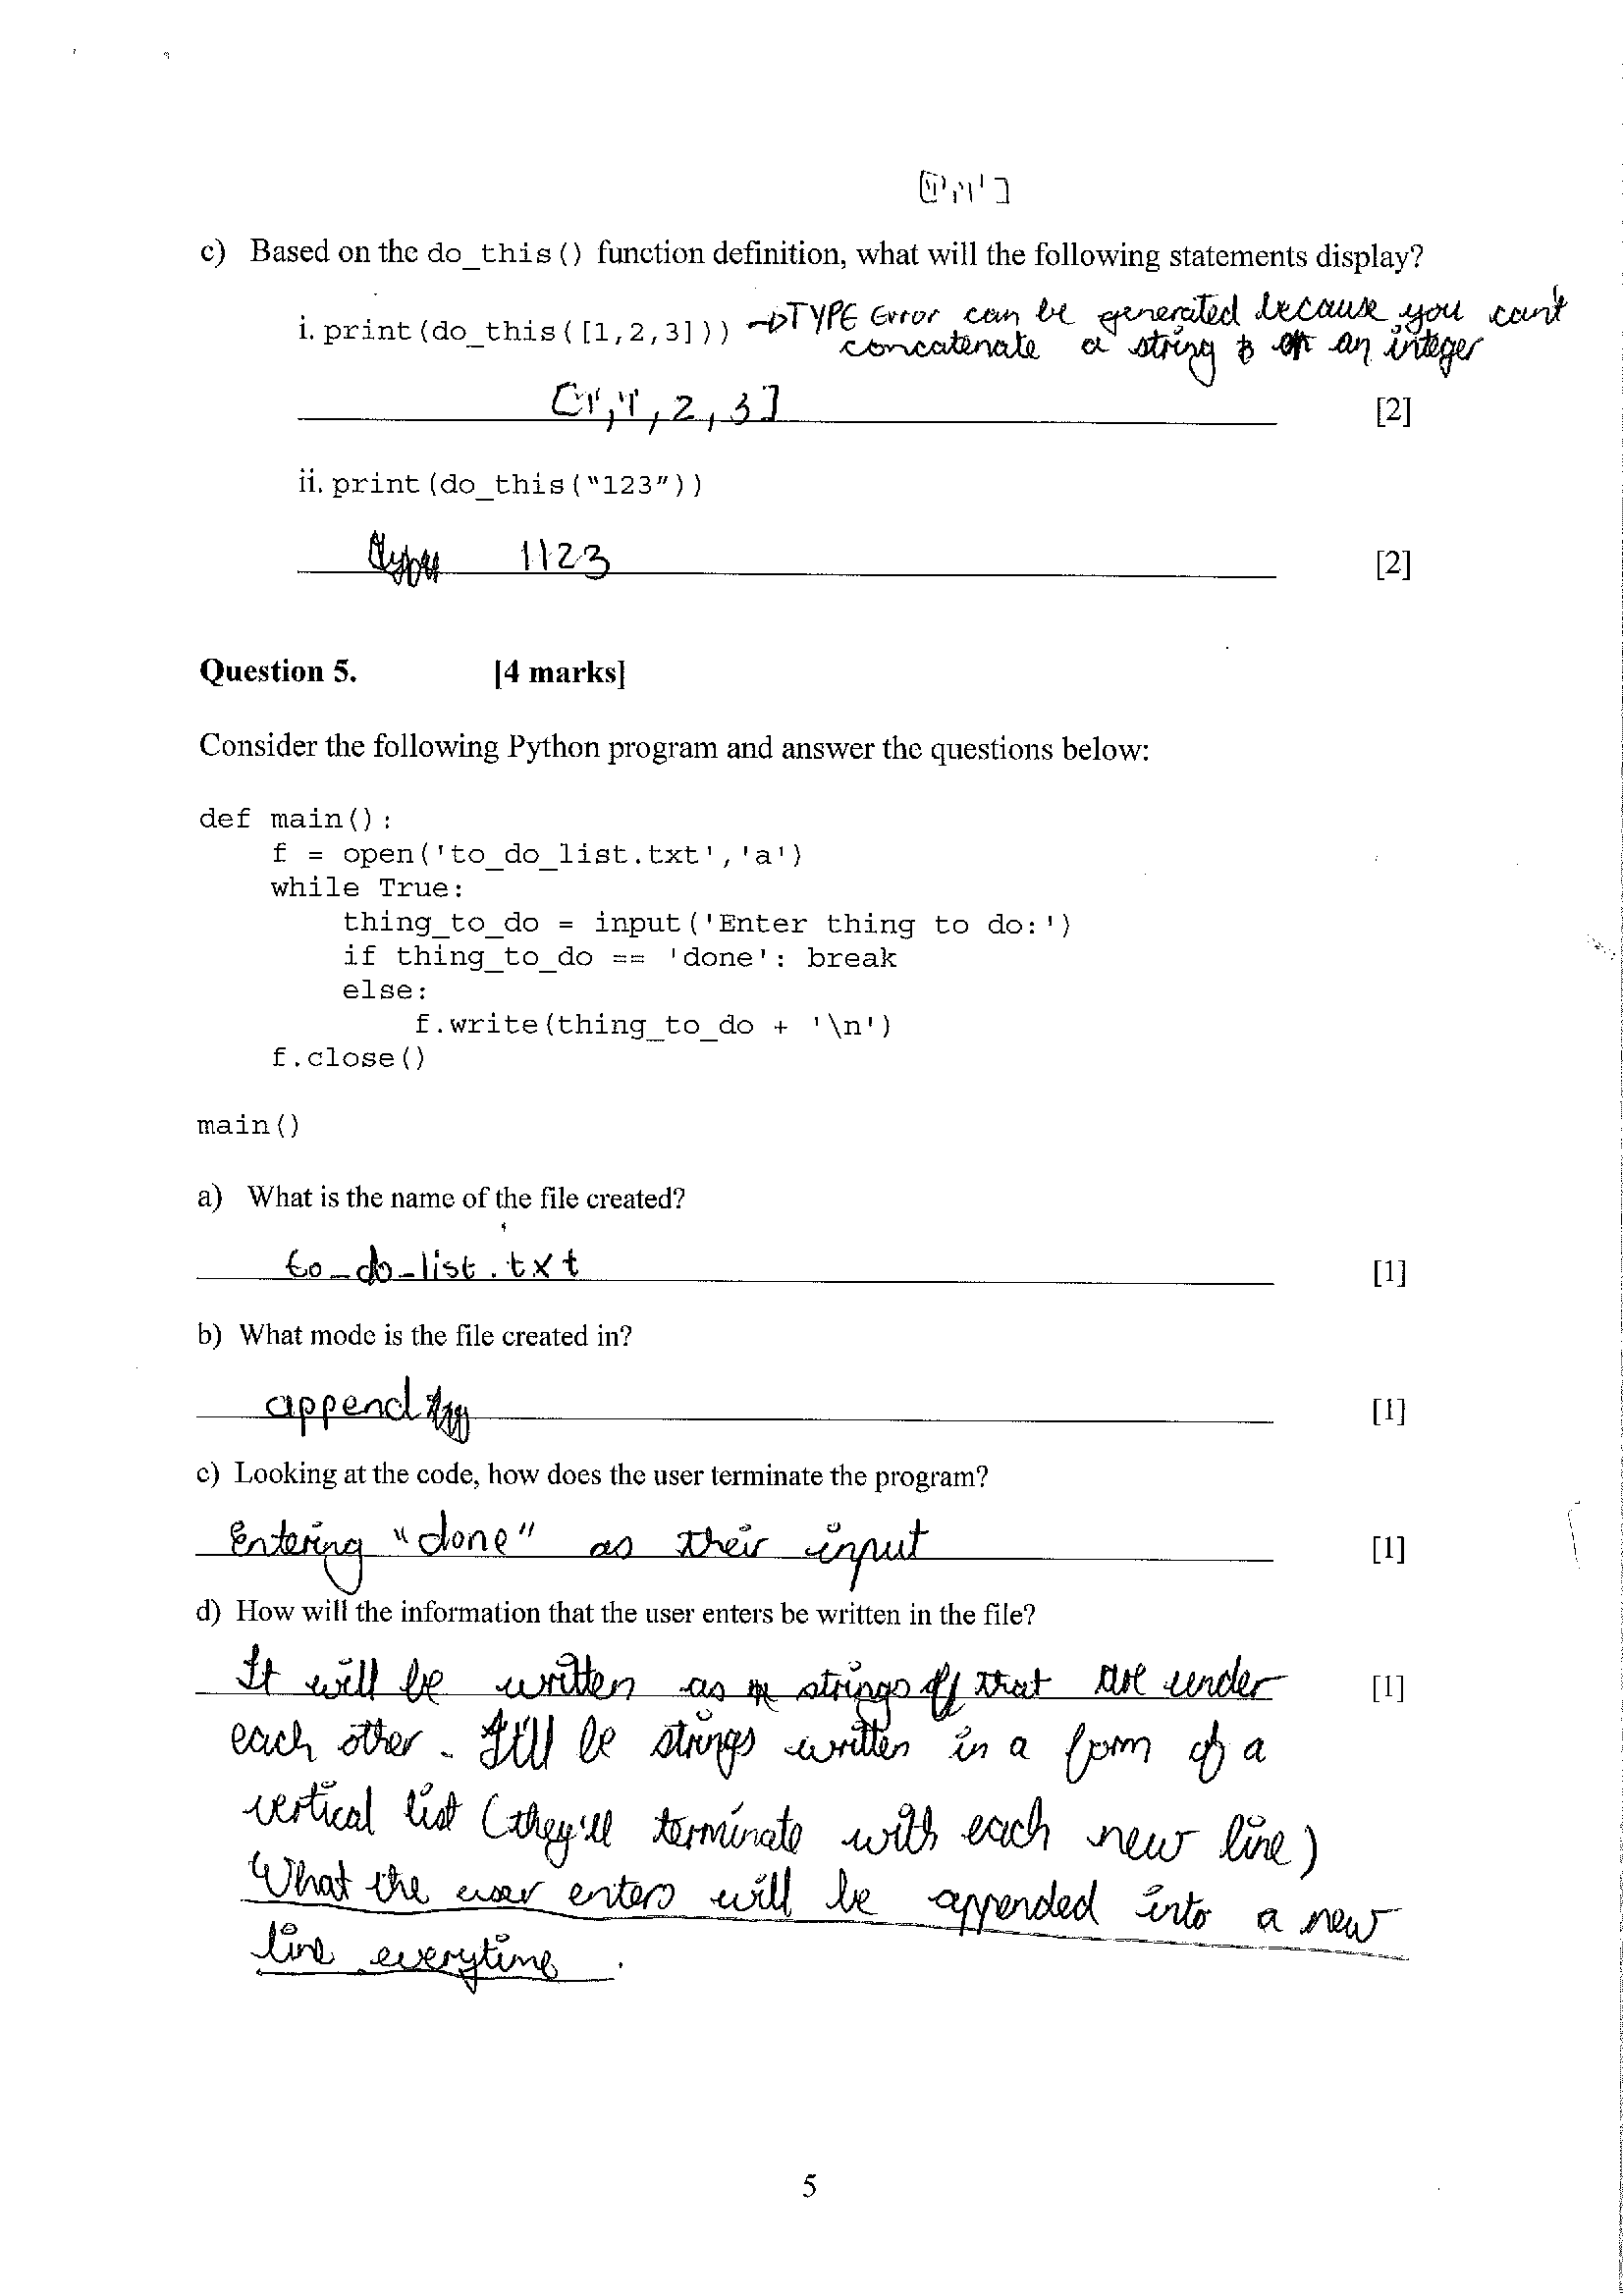 c) Based on the do_this() function definition, what will the following statements display?
i. print(do_this([1,2,3])) → TYPE Error can be generated because you can't
concatenate a string an integer
2, 3] [2]
ii. print(do_this(“123”))
1123 [2]
Question 5. [4 marks]
Consider the following Python program and answer the questions below:
def main():
    f = open('to_do_list.txt','a')
    while True:
        thing_to_do = input('Enter thing to do:')
        if thing_to_do == 'done': break
        else:
            f.write(thing_to_do + '\n')
    f.close()
main()
a) What is the name of the file created?
to_do_list.txt [1]
b) What mode is the file created in?
append [1]
c) Looking at the code, how does the user terminate the program?
Entering "done" as their input [1]
d) How will the information that the user enters be written in the file?
It will be written as strings that are under [1]
each other. It'll be strings written in a form of a
vertical list (they'll terminate with each new line)
What the user enters will be appended into a new
line everytime.
5